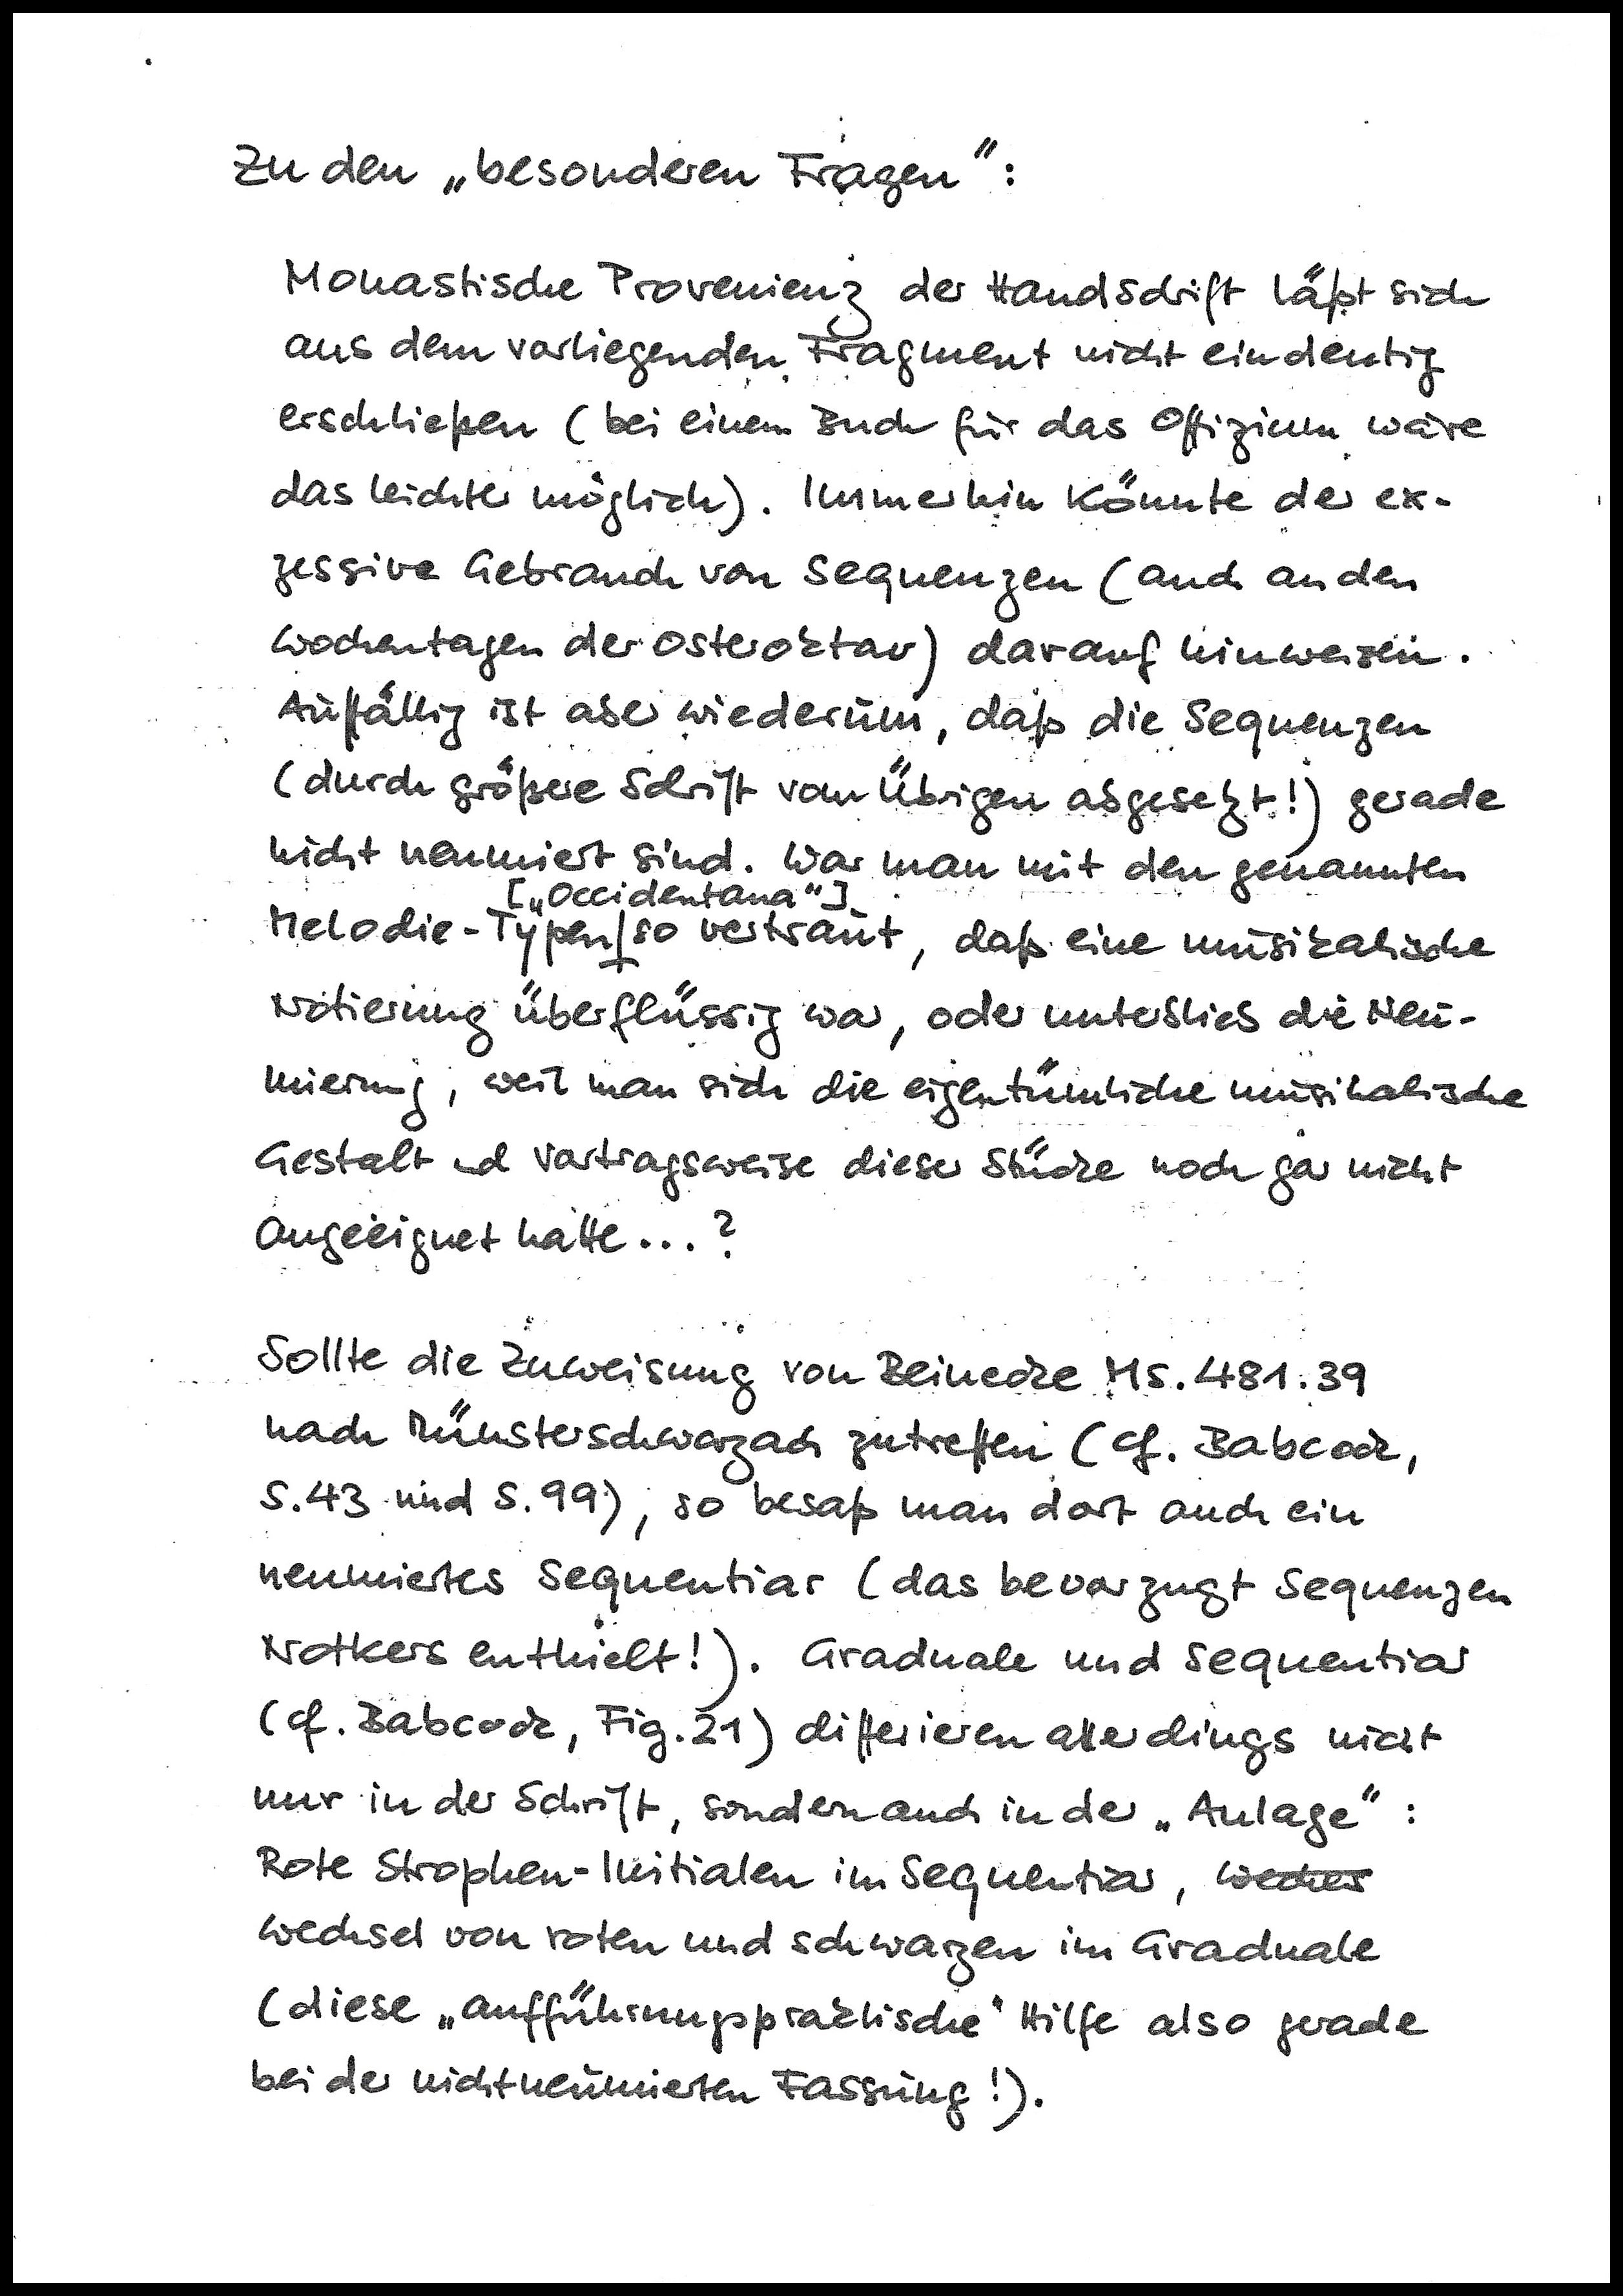 Zu den „besonderen Fragen":
Monastische Provenienz der Handschrift läßt sich
aus dem vorliegenden Fragment nicht eindeutig
erschließen (bei einem Buch für das Offizium wäre
das leichter möglich). Immerhin könnte der ex-
zessive Gebrauch von Sequenzen (auch an den
Wochentagen der Osteroktav) darauf hinweisen.
Auffällig ist aber wiederum, daß die Sequenzen
(durch größere Schrift vom Übrigen abgesetzt!) gerade
nicht neumiert sind. War man mit den genannten
[„Occidentana"]
Melodie-Typen so vertraut, daß eine musikalische
Notierung überflüssig war, oder unterblieb die Neu-
mierung, weil man sich die eigentümliche musikalische
Gestalt und Vortragsweise dieser Stücke noch gar nicht
angeeignet hatte...?
Sollte die Zuweisung von Beinecke MS. 481.39
nach Münsterschwarzach zutreffen (cf. Babcock,
S. 43 und S. 99), so besaß man dort auch ein
neumiertes Sequentiar (das bevorzugt Sequenzen
Notkers enthielt!). Graduale und Sequentiar
(cf. Babcock, Fig. 21) differieren allerdings nicht
nur in der Schrift, sondern auch in der „Anlage":
Rote Strophen-Initialen im Sequentiar,
Wechsel von roten und schwarzen im Graduale
(diese „aufführungspraktische" Hilfe also gerade
bei der nichtneumierten Fassung!).